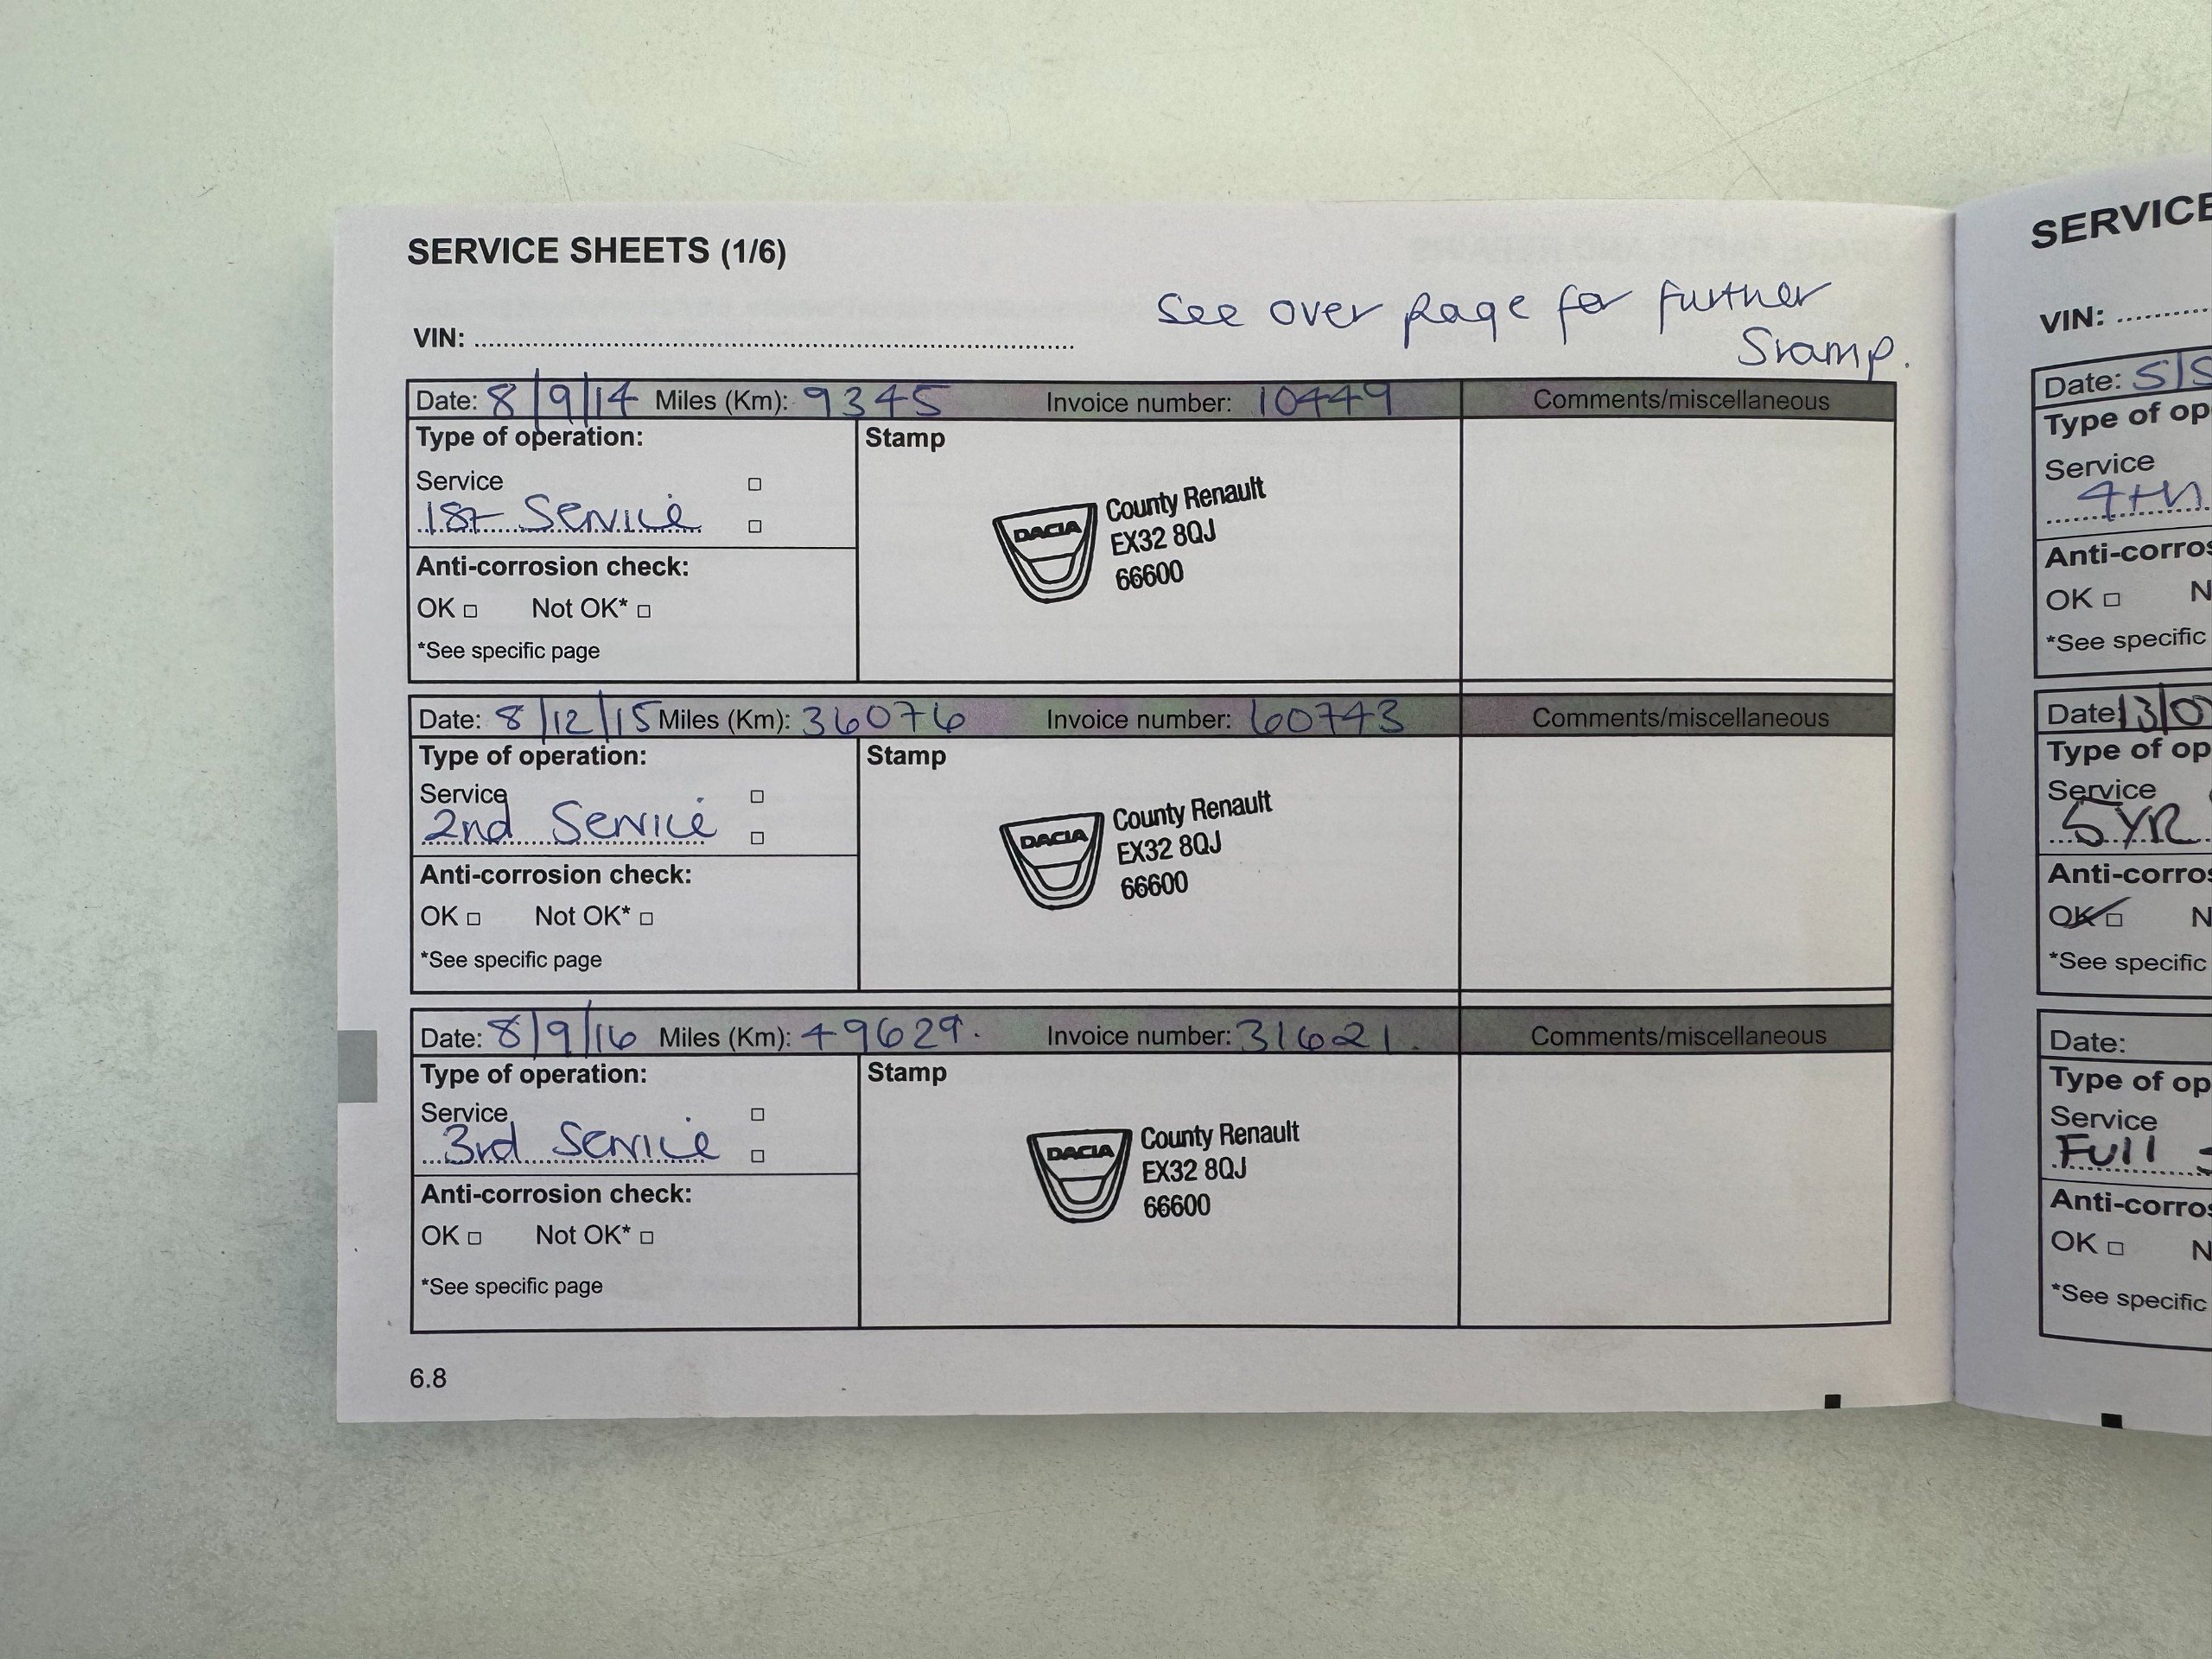 SERVICE SHEETS (1/6)
See over page for further
Stamp.
VIN:
Date: 8/9/14 Miles (Km): 9345 Invoice number: 10449 Comments/miscellaneous
Type of operation:
Stamp
Service
1st Service
Anti-corrosion check:
OK Not OK*
*See specific page
DACIA
County Renault
EX32 8QJ
66600
Date: 8/12/15 Miles (Km): 36076 Invoice number: 60743 Comments/miscellaneous
Type of operation:
Stamp
Service
2nd Service
Anti-corrosion check:
OK Not OK*
*See specific page
DACIA
County Renault
EX32 8QJ
66600
Date: 8/9/16 Miles (Km): 49629. Invoice number: 31621. Comments/miscellaneous
Type of operation:
Stamp
Service
3rd Service
Anti-corrosion check:
OK Not OK*
*See specific page
DACIA
County Renault
EX32 8QJ
66600
6.8
SERVICE
VIN:
Date: 5/5
Type of op
Service
4th
Anti-corros
OK N
*See specific
Date: 13/0
Type of op
Service
5 YR
Anti-corros
OK N
*See specific
Date:
Type of op
Service
Full
Anti-corros
OK N
*See specific